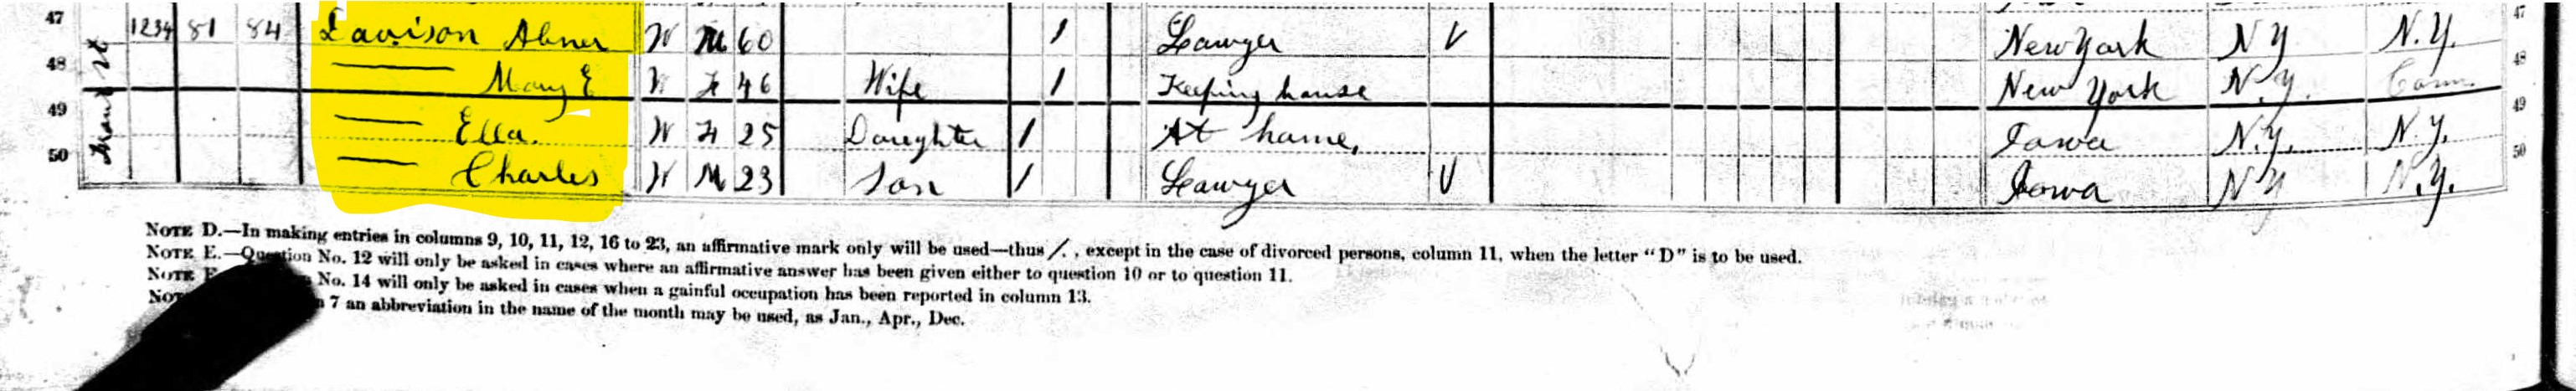 47 1234 81 84 Davison Abner W M 60 1 Lawyer V New York N Y N.Y. 47
48 Mary E W F 46 Wife 1 Keeping house New York N.Y. Conn. 48
49 Ella. W F 25 Daughter 1 At home, Iowa N.Y. N.Y. 49
50 Charles W M 23 Son 1 Lawyer V Iowa N Y N.Y. 50
NOTE D.—In making entries in columns 9, 10, 11, 12, 16 to 23, an affirmative mark only will be used—thus /. , except in the case of divorced persons, column 11, when the letter "D" is to be used.
NOTE E.—Question No. 12 will only be asked in cases where an affirmative answer has been given either to question 10 or to question 11.
NOTE No. 14 will only be asked in cases when a gainful occupation has been reported in column 13.
7 an abbreviation in the name of the month may be used, as Jan., Apr., Dec.